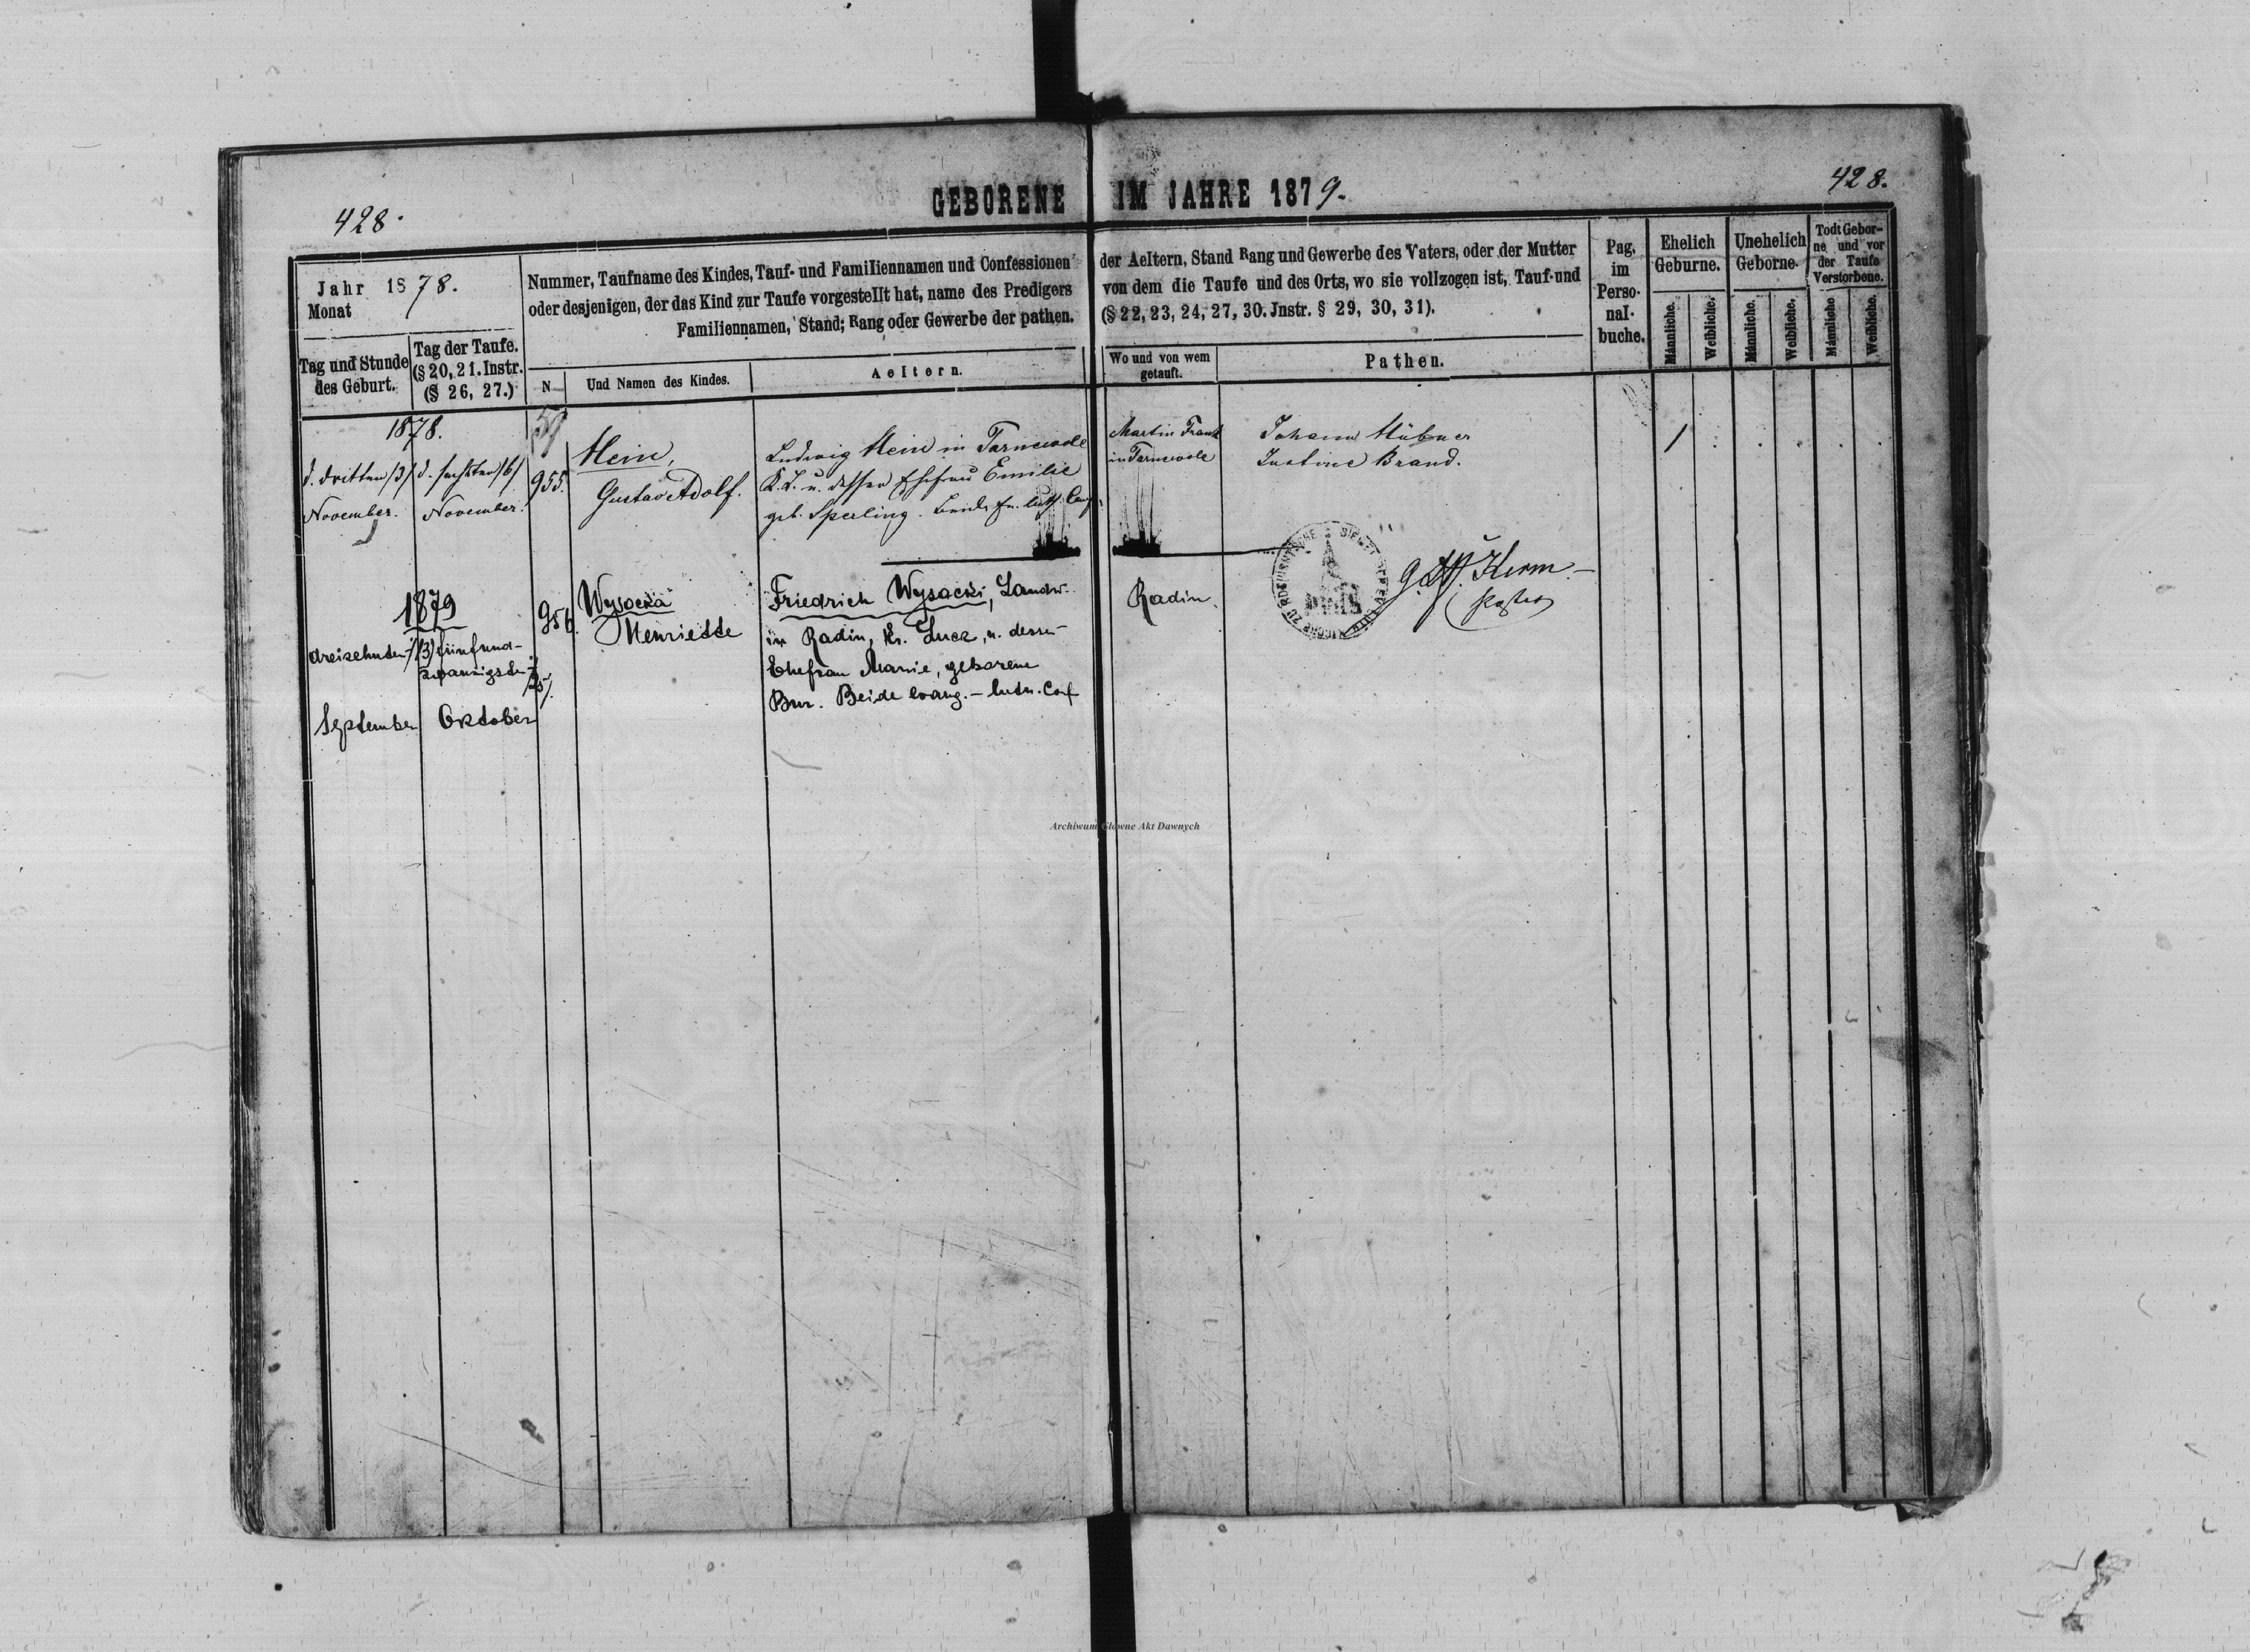 GEBORENE IM JAHRE 1879.
428.
428.
Jahr 1878.
Monat
Tag und Stunde des Geburt.
Tag der Taufe.
(§ 20, 21. Instr.
(§ 26, 27.)
Nummer, Taufname des Kindes, Tauf- und Familiennamen und Confessionen der Aeltern, Stand Rang und Gewerbe des Vaters, oder der Mutter
oder desjenigen, der das Kind zur Taufe vorgestellt hat, name des Predigers von dem die Taufe und des Orts, wo sie vollzogen ist, Tauf-und
Familiennamen, Stand; Rang oder Gewerbe der pathen. (§ 22, 23, 24, 27, 30. Jnstr. § 29, 30, 31).
N
Und Namen des Kindes.
Aeltern.
Wo und von wem
getauft.
Pathen.
Pag.
im
Perso-
nal-
buche.
Ehelich
Geburne.
Unehelich
Geborne.
Todt Gebor-
ne und vor
der Taufe
Verstorbene.
Männliche.
Weibliche.
Männliche.
Weibliche.
Männliche
Weibliche.
1878.
d. dritten /3/
November.
d. sechsten /6/
November.
955.
Hein,
Gustav Adolf.
Ludwig Hein in Tarnewole
K. L. u. dessen Ehefrau Emilie
geb. Sperling. Beide ev. luth. Conf.
Martin Frank
in Tarnewole
Johann Hübner
Justine Brand.
/
1879
dreizehnten /13/
September
fünfund-
zwanzigsten /25/.
Oktober
956.
Wysocka
Henriette
Friedrich Wysocki, Landw.
in Radin, Kr. Luck, u. dessen
Ehefrau Marie, geborene
Bur. Beide evang.-luth. Conf
Radin.
Kerm.
Pastor
Archiwum Główne Akt Dawnych